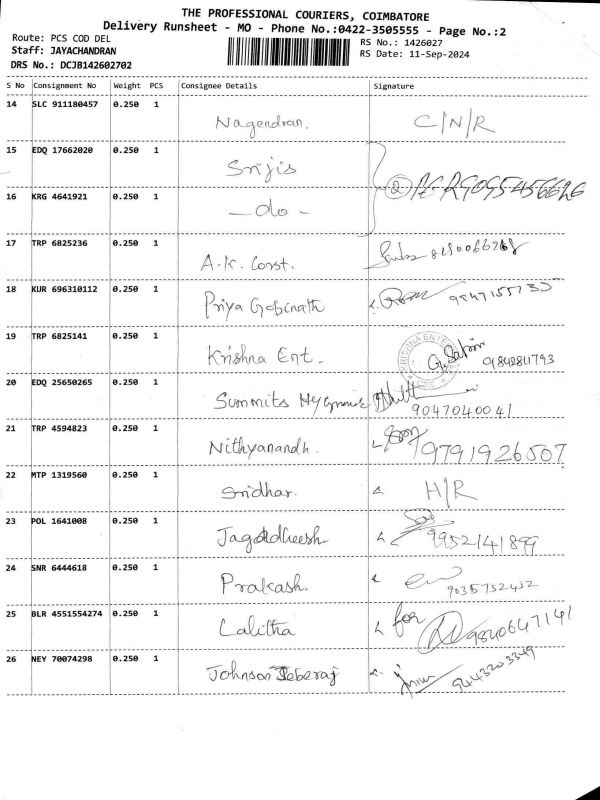 THE PROFESSIONAL COURIERS, COIMBATORE
Delivery Runsheet - MO - Phone No.:0422-3505555 - Page No.:2
Route: PCS COD DEL
RS No.: 1426027
Staff: JAYACHANDRAN
RS Date: 11-Sep-2024
DRS No.: DCJB142602702
S No Consignment No Weight PCS Consignee Details Signature
14 SLC 911180457 0.250 1 Nagendran. C/N/R
15 EDQ 17662020 0.250 1 Srijis
16 KRG 4641921 0.250 1 - do - 2
17 TRP 6825236 0.250 1 A.K. Const.
18 KUR 696310112 0.250 1 Priya Gopinath
19 TRP 6825141 0.250 1 Krishna Ent. KRISHNA 9842811793
20 EDQ 25650265 0.250 1 Summits 9047040041
21 TRP 4594823 0.250 1 Nithyanandh. 9791926507
22 MTP 1319560 0.250 1 Sridhar. H/R
23 POL 1641008 0.250 1 Jagadheesh 9952141899
24 SNR 6444618 0.250 1 Prakash. 9035752432
25 BLR 4551554274 0.250 1 Lalitha for 9840647141
26 NEY 70074298 0.250 1 Johnson Jeberaj 9443203349